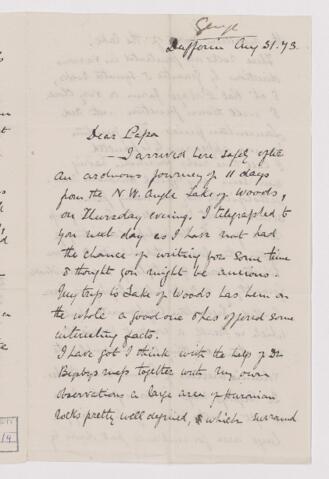 George
Dufferin Aug 31. 73.
Dear Papa
— I arrived here safely after
an arduous journey of 11 days
from the N.W. Angle Lake of Woods,
on Thursday evening. I telegraphed to
you next day as I have not had
the chance of writing for some time
& thought you might be anxious.
My trip to Lake of Woods has been on
the whole a good one & has offered some
interesting facts.
I have got I think with the help of Dr
Bigsby's maps together with my own
observations a large area of Huronian
rocks pretty well defined, & which surround
14